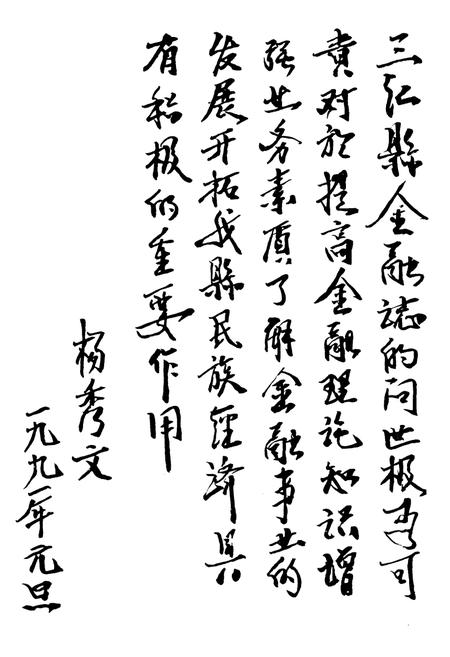 三江縣金融誌的问世极為可
貴对於提高金融理论知识增
强业务素質了解金融事业的
发展开拓我縣民族經济具
有积极的重要作用
杨秀文
一九九一年元旦